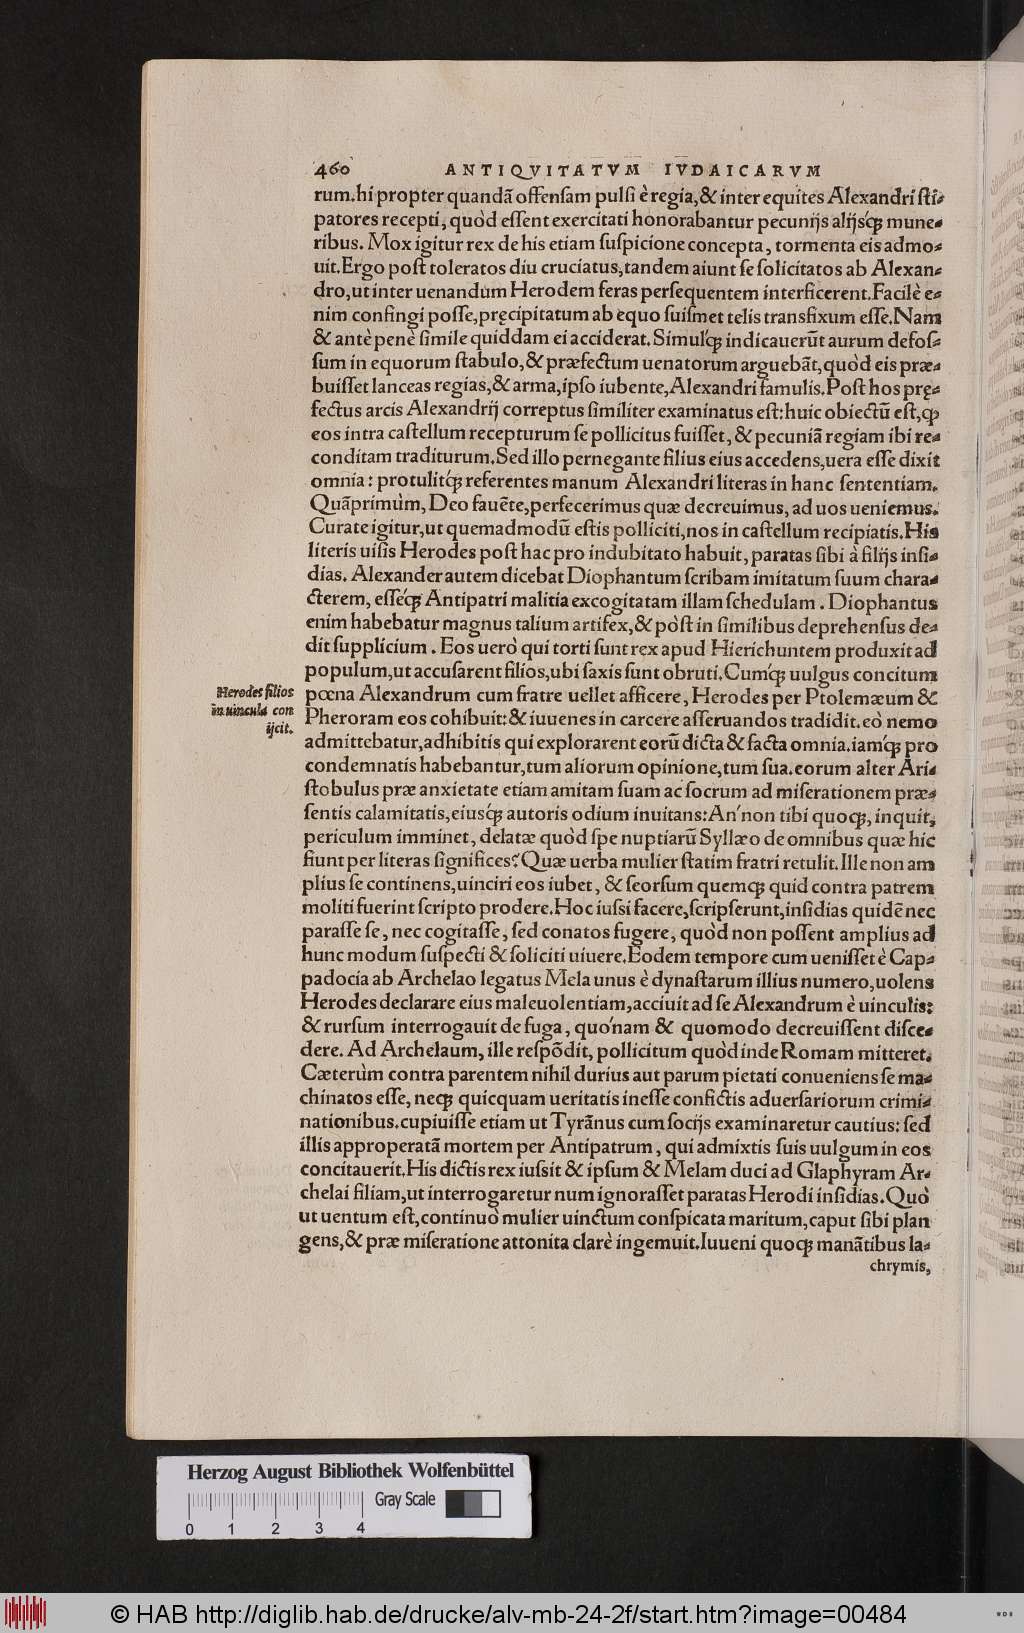 460 ANTIQVITATVM IVDAICARVM
rum.hi propter quandã offenſam pulſi è regia,& inter equites Alexandri ſti-
patores recepti, quòd eſſent exercitati honorabantur pecunijs alijsq́; mune-
ribus. Mox igitur rex de his etiam ſuſpicione concepta, tormenta eis admo-
uit.Ergo poſt toleratos diu cruciatus,tandem aiunt ſe ſolicitatos ab Alexan-
dro,ut inter uenandum Herodem feras perſequentem interficerent.Facilè e-
nim confingi poſſe,pręcipitatum ab equo ſuiſmet telis transfixum eſſe.Nam
& antè penè ſimile quiddam ei acciderat.Simulq́; indicauerũt aurum defoſ-
ſum in equorum ſtabulo,& præfectum uenatorum arguebãt,quòd eis præ-
buiſſet lanceas regias,& arma,ipſo iubente,Alexandri famulis.Poſt hos prę-
fectus arcis Alexandrij correptus ſimiliter examinatus eſt:huic obiectũ eſt,ꝙ
eos intra caſtellum recepturum ſe pollicitus fuiſſet, & pecuniã regiam ibi re-
conditam traditurum.Sed illo pernegante filius eius accedens,uera eſſe dixit
omnia: protulitq́; referentes manum Alexandri literas in hanc ſententiam.
Quãprimùm, Deo fauẽte,perfecerimus quæ decreuimus, ad uos ueniemus.
Curate igitur,ut quemadmodũ eſtis polliciti,nos in caſtellum recipiatis.His
literis uiſis Herodes poſt hac pro indubitato habuit, paratas ſibi à filijs inſi-
dias. Alexander autem dicebat Diophantum ſcribam imitatum ſuum chara-
cterem, eſſeq́; Antipatri malitia excogitatam illam ſchedulam. Diophantus
enim habebatur magnus talium artifex,& pòſt in ſimilibus deprehenſus de-
dit ſupplicium. Eos uerò qui torti ſunt rex apud Hierichuntem produxit ad
populum,ut accuſarent filios,ubi ſaxis ſunt obruti.Cumq́; uulgus concitum
pœna Alexandrum cum fratre uellet afficere, Herodes per Ptolemæum &
Pheroram eos cohibuit:& iuuenes in carcere aſſeruandos tradidit.eò nemo
admittebatur,adhibitis qui explorarent eorũ dicta & facta omnia.iamq́; pro
condemnatis habebantur,tum aliorum opinione,tum ſua.eorum alter Ari-
ſtobulus præ anxietate etiam amitam ſuam ac ſocrum ad miſerationem præ-
ſentis calamitatis,eiusq́; autoris odium inuitans:An' non tibi quoq;, inquit,
periculum imminet, delatæ quòd ſpe nuptiarũ Syllæo de omnibus quæ hic
fiunt per literas ſignifices? Quæ uerba mulier ſtatim fratri retulit.Ille non am
plius ſe continens,uinciri eos iubet, & ſeorſum quemq; quid contra patrem
moliti fuerint ſcripto prodere.Hoc iuſsi facere,ſcripſerunt,inſidias quidẽ nec
paraſſe ſe, nec cogitaſſe, ſed conatos fugere, quòd non poſſent amplius ad
hunc modum ſuſpecti & ſoliciti uiuere.Eodem tempore cum ueniſſet è Cap-
padocia ab Archelao legatus Mela unus è dynaſtarum illius numero,uolens
Herodes declarare eius maleuolentiam,acciuit ad ſe Alexandrum è uinculis:
& rurſum interrogauit de fuga, quónam & quomodo decreuiſſent diſce-
dere. Ad Archelaum, ille reſpõdit, pollicitum quòd inde Romam mitteret.
Cæterùm contra parentem nihil durius aut parum pietati conueniens ſe ma-
chinatos eſſe, neq; quicquam ueritatis ineſſe confictis aduerſariorum crimi-
nationibus.cupiuiſſe etiam ut Tyrãnus cum ſocijs examinaretur cautius: ſed
illis approperatã mortem per Antipatrum, qui admixtis ſuis uulgum in eos
concitauerit.His dictis rex iuſsit & ipſum & Melam duci ad Glaphyram Ar-
chelai filiam,ut interrogaretur num ignoraſſet paratas Herodi inſidias.Quò
ut uentum eſt,continuò mulier uinctum conſpicata maritum,caput ſibi plan
gens,& præ miſeratione attonita clarè ingemuit.Iuueni quoq; manãtibus la-
chrymis,
Herodes filios
in uincula con
ijcit.
Herzog August Bibliothek Wolfenbüttel
Gray Scale
0 1 2 3 4
© HAB http://diglib.hab.de/drucke/alv-mb-24-2f/start.htm?image=00484